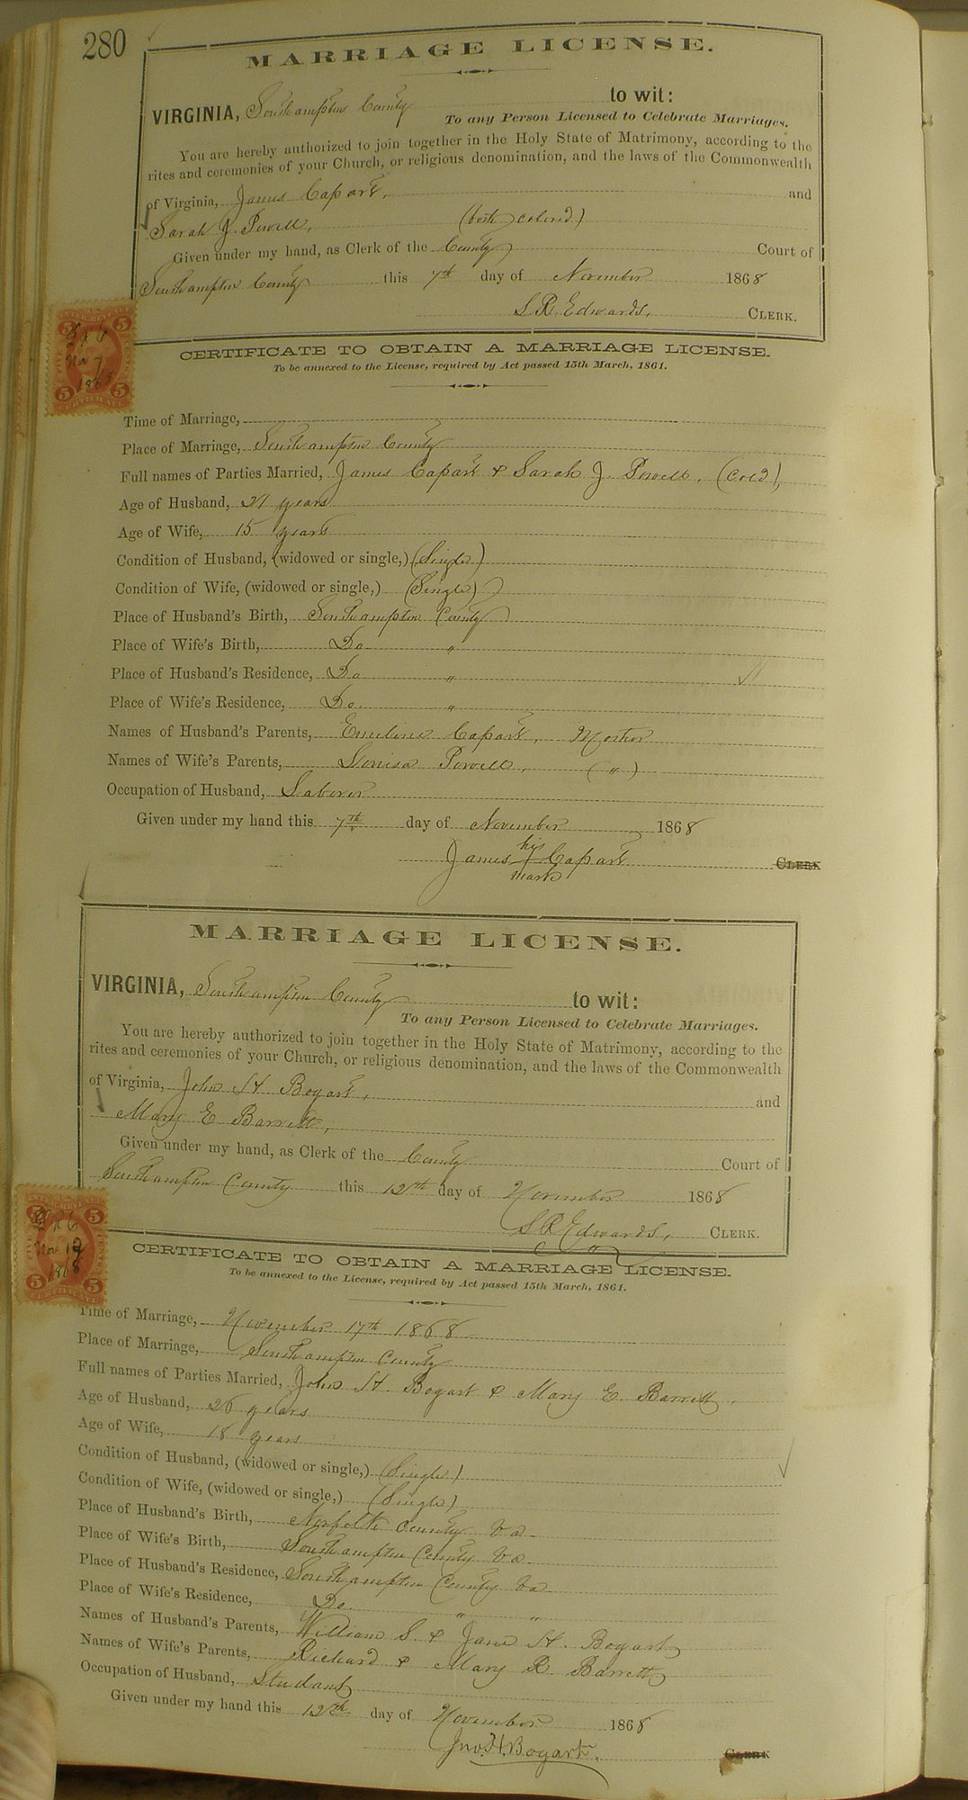 280
MARRIAGE LICENSE.
VIRGINIA, Southampton County to wit:
To any Person Licensed to Celebrate Marriages.
You are hereby authorized to join together in the Holy State of Matrimony, according to the
rites and ceremonies of your Church, or religious denomination, and the laws of the Commonwealth
of Virginia, James Capart, and
Sarah J. Powell, (both colored)
Given under my hand, as Clerk of the County Court of
Southampton County this 7th day of November 1868
L R Edwards, CLERK.
5 5
Nov 7
1868
5 5
CERTIFICATE
CERTIFICATE TO OBTAIN A MARRIAGE LICENSE.
To be annexed to the License, required by Act passed 15th March, 1861.
Time of Marriage,
Place of Marriage, Southampton County
Full names of Parties Married, James Capart & Sarah J. Powell. (Cold),
Age of Husband, 21 years
Age of Wife, 15 years
Condition of Husband, (widowed or single,) (Single)
Condition of Wife, (widowed or single,) (Single)
Place of Husband's Birth, Southampton County
Place of Wife's Birth, Do "
Place of Husband's Residence, Do "
Place of Wife's Residence, Do. "
Names of Husband's Parents, Emeline Capart, Mother
Names of Wife's Parents, Louisa Powell, ( " )
Occupation of Husband, Laborer
Given under my hand this 7th day of November 1868
his
James Capart CLERK
mark
MARRIAGE LICENSE.
VIRGINIA, Southampton County to wit:
To any Person Licensed to Celebrate Marriages.
You are hereby authorized to join together in the Holy State of Matrimony, according to the
rites and ceremonies of your Church, or religious denomination, and the laws of the Commonwealth
of Virginia, John H. Bogart, and
Mary E Barrett,
Given under my hand, as Clerk of the County Court of
Southampton County this 12th day of November 1868
L R Edwards, CLERK.
5 5
Nov 12
1868
5 5
CERTIFICATE TO OBTAIN A MARRIAGE LICENSE.
To be annexed to the License, required by Act passed 15th March, 1861.
Time of Marriage, November 17th 1868
Place of Marriage, Southampton County
Full names of Parties Married, John H. Bogart & Mary E. Barrett.
Age of Husband, 26 years
Age of Wife, 18 years
Condition of Husband, (widowed or single,) (Single)
Condition of Wife, (widowed or single,) (Single)
Place of Husband's Birth, Norfolk County Va
Place of Wife's Birth, Southampton County Va
Place of Husband's Residence, Southampton County Va
Place of Wife's Residence, Do. " "
Names of Husband's Parents, William S. & Jane H. Bogart
Names of Wife's Parents, Richard & Mary R. Barrett
Occupation of Husband, Student
Given under my hand this 12th day of November 1868
Jno. H. Bogart. CLERK